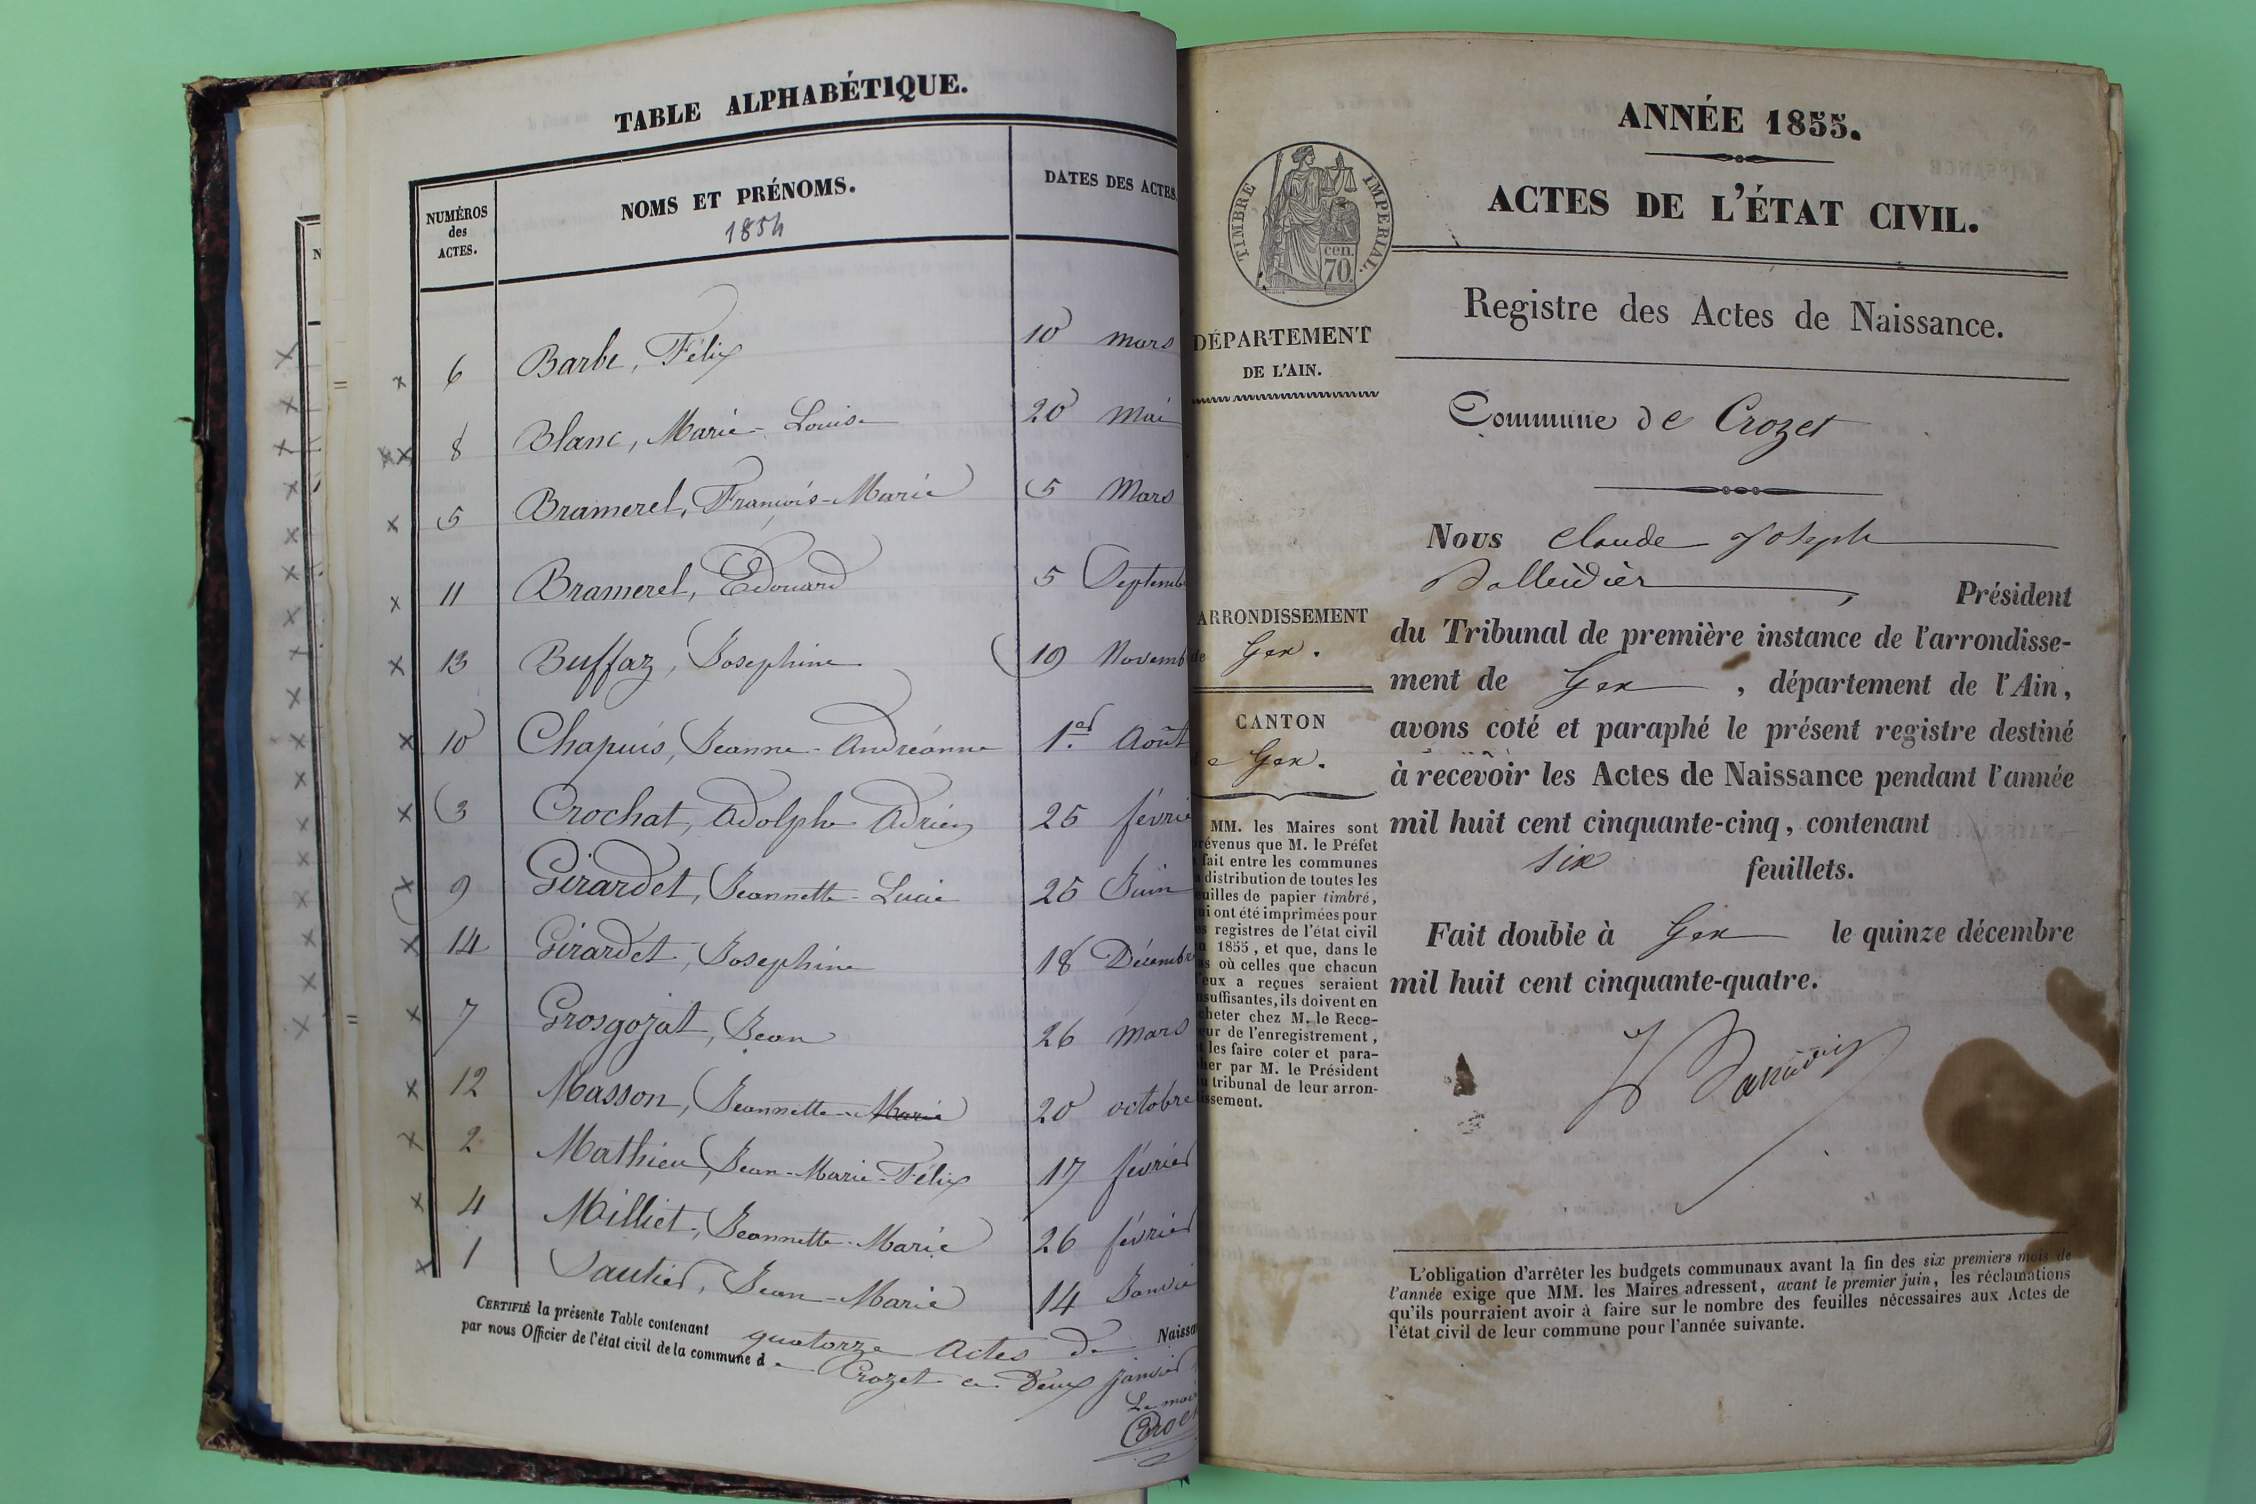 TABLE ALPHABÉTIQUE.
NUMÉROS des ACTES.
NOMS ET PRÉNOMS.
1854
DATES DES ACTES.
6 Barbe, Félix 10 mars
8 Blanc, Marie-Louise 20 Mai
5 Bramerel, François-Marie 5 Mars
11 Bramerel, Edouard 5 Septemb
13 Buffaz, Josephine 19 Novemb
10 Chapuis, Jeanne-Andréanne 1.er Août
3 Crochat, Adolphe Adrien 25 févrie
9 Girardet, Jeannette-Lucie 25 Juin
14 Girardet, Josephine 18 Décembre
7 Grosgojat, Jean 26 mars
12 Masson, Jeannette-Marie 20 octobre
2 Mathieu, Jean-Marie-Félix 17 février
4 Milliet, Jeannette-Marie 26 février
1 Sautier, Jean-Marie 14 Janvie
CERTIFIÉ la présente Table contenant quatorze Actes de Naissa
par nous Officier de l'état civil de la commune de Crozet ce deux janvier
Le mai
ANNÉE 1855.
ACTES DE L'ÉTAT CIVIL.
TIMBRE IMPERIAL.
cen.
70.
Registre des Actes de Naissance.
DÉPARTEMENT
DE L'AIN.
Commune de Crozet
ARRONDISSEMENT
de Gex.
CANTON
de Gex.
MM. les Maires sont
révenus que M. le Préfet
fait entre les communes
distribution de toutes les
euilles de papier timbré,
ui ont été imprimées pour
es registres de l'état civil
n 1855, et que, dans le
as où celles que chacun
'eux a reçues seraient
nsuffisantes, ils doivent en
cheter chez M. le Rece-
eur de l'enregistrement,
t les faire coter et para-
her par M. le Président
u tribunal de leur arron-
issement.
Nous Claude Joseph
Balleidier, Président
du Tribunal de première instance de l'arrondisse-
ment de Gex, département de l'Ain,
avons coté et paraphé le présent registre destiné
à recevoir les Actes de Naissance pendant l'année
mil huit cent cinquante-cinq, contenant
six feuillets.
Fait double à Gex le quinze décembre
mil huit cent cinquante-quatre.
L'obligation d'arrêter les budgets communaux avant la fin des six premiers mois de
l'année exige que MM. les Maires adressent, avant le premier juin, les réclamations
qu'ils pourraient avoir à faire sur le nombre des feuilles nécessaires aux Actes de
l'état civil de leur commune pour l'année suivante.